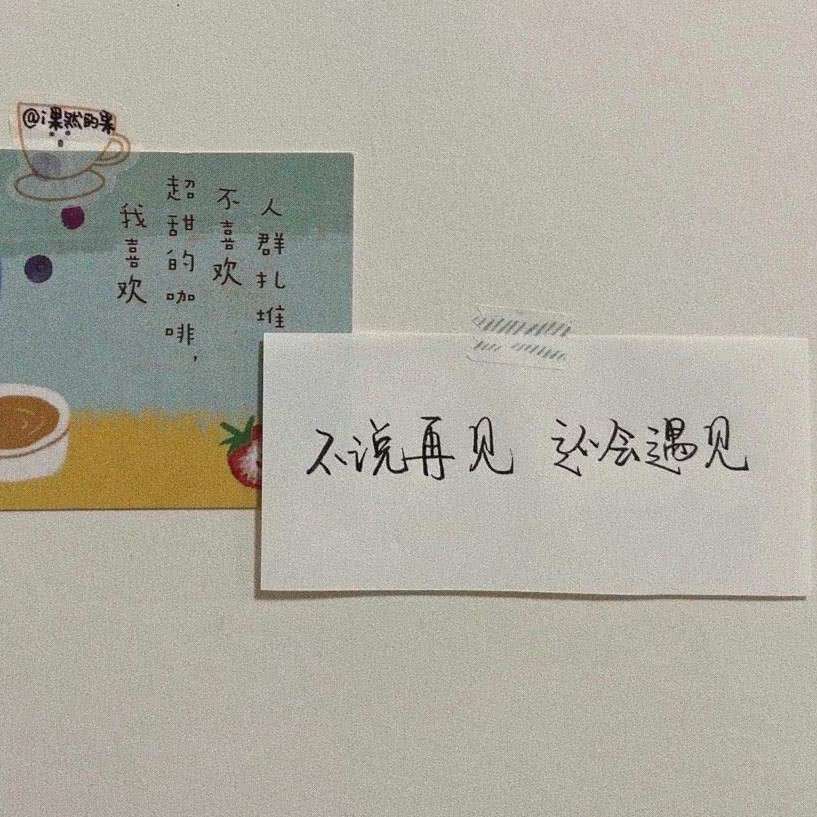 @i果然的果
人群扎堆
不喜欢
超甜的咖啡，
我喜欢
不说再见 还会遇见